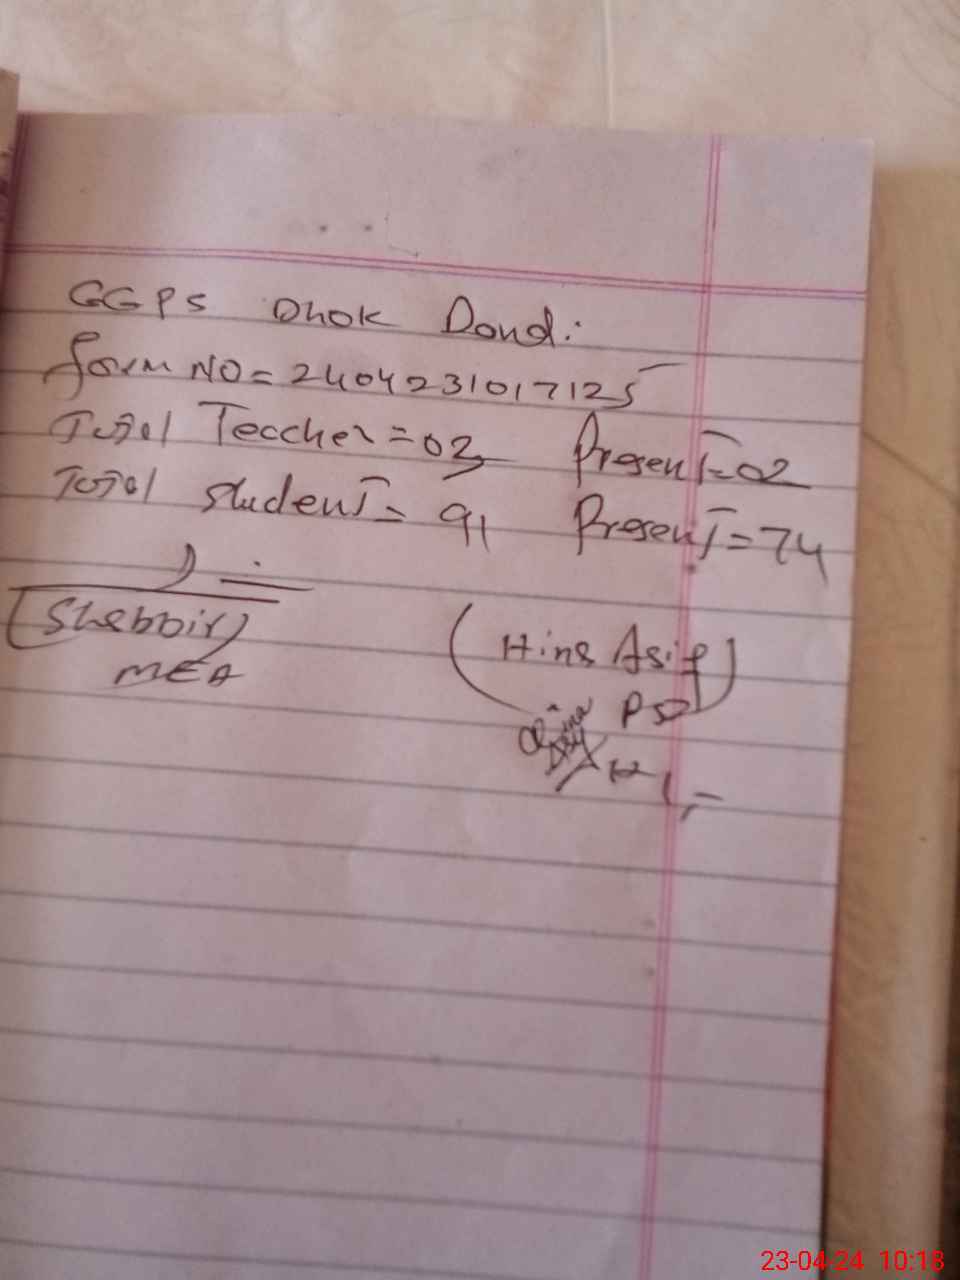 GGPS Dhok Dond.
form NO = 2404231017125
Total Teacher = 03 Present = 02
Total student = 91 Present = 74
(Shabbir)
MEA
(Hina Asif)
PST
23-04-24 10:18